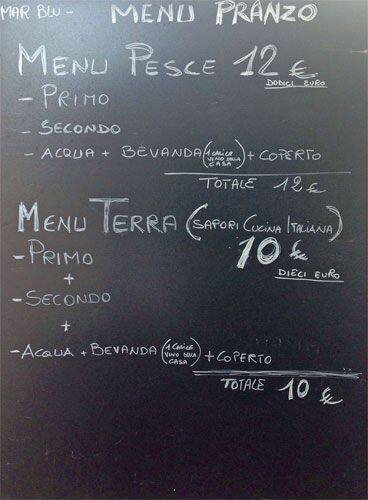 MAR BLU - MENU PRANZO
MENU PESCE 12 €
DODICI EURO
- PRIMO
- SECONDO
- ACQUA + BEVANDA (1 CALICE VINO DELLA CASA) + COPERTO
TOTALE 12 €
MENU TERRA (SAPORI CUCINA ITALIANA)
10 €
DIECI EURO
- PRIMO
+
- SECONDO
+
- ACQUA + BEVANDA (1 CALICE VINO DELLA CASA) + COPERTO
TOTALE 10 €